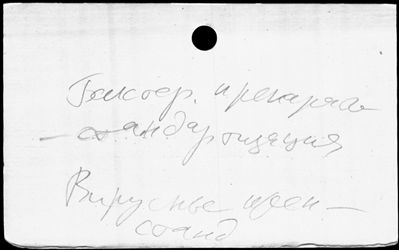 Бактер. препара-
- стандартизация
Вирусные преп -
станд